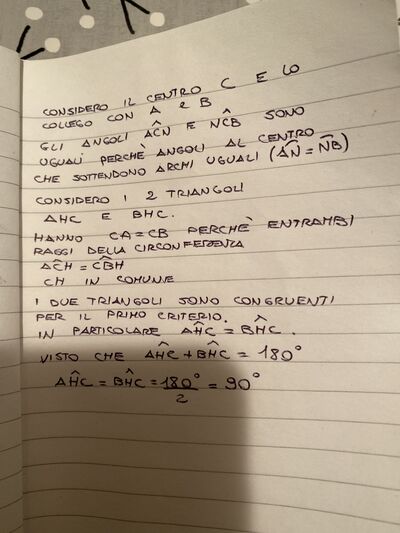 CONSIDERO IL CENTRO C E LO
COLLEGO CON A E B
GLI ANGOLI AĈN E NĈB SONO
UGUALI PERCHÈ ANGOLI AL CENTRO
CHE SOTTENDONO ARCHI UGUALI (AN̂ = NB̂)
CONSIDERO I 2 TRIANGOLI
AHC E BHC.
HANNO CA=CB PERCHÈ ENTRAMBI
RAGGI DELLA CIRCONFERENZA
AĈH = CB̂H
CH IN COMUNE
I DUE TRIANGOLI SONO CONGRUENTI
PER IL PRIMO CRITERIO.
IN PARTICOLARE AĤC = BĤC.
VISTO CHE AĤC + BĤC = 180°
AĤC = BĤC = 180°/2 = 90°